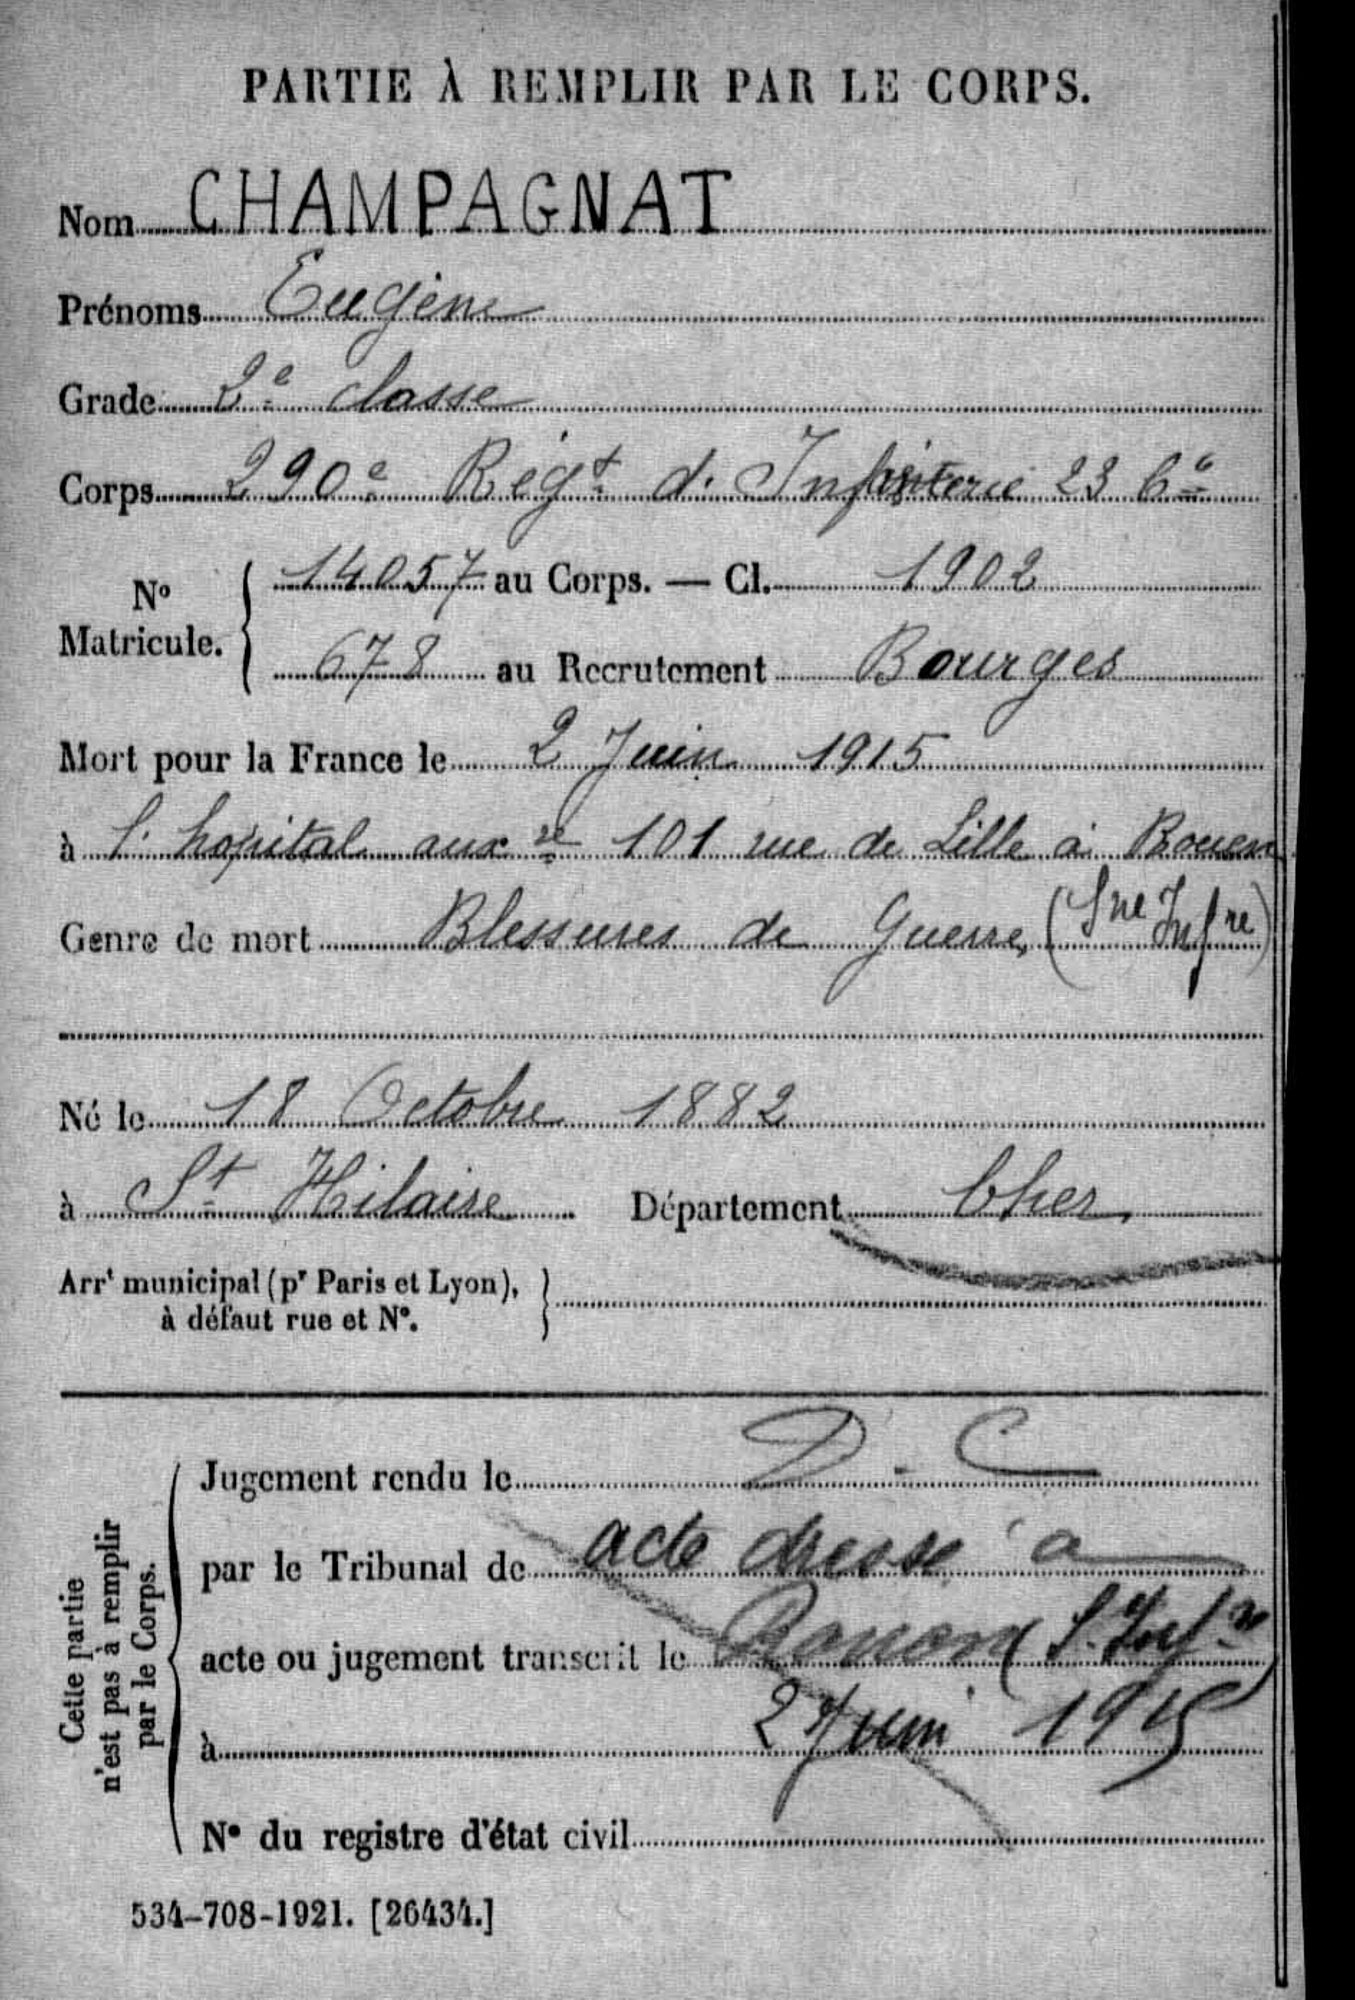 PARTIE À REMPLIR PAR LE CORPS.
Nom CHAMPAGNAT
Prénoms Eugène
Grade 2e classe
Corps 290e Régt d'Infanterie 23 Cie
No Matricule. 14057 au Corps. — Cl. 1902
678 au Recrutement Bourges
Mort pour la France le 2 Juin 1915
à l'hopital auxre 101 rue de Lille à Rouen
Genre de mort Blessures de Guerre (Sne Infre)
Né le 18 Octobre 1882
à St Hilaire Département Cher
Arrt municipal (pr Paris et Lyon),
à défaut rue et No.
Cette partie
n'est pas à remplir
par le Corps.
Jugement rendu le D. C
par le Tribunal de acte dressé a
acte ou jugement transcrit le Rouen (S. Infre)
à 2 Juin 1915
No du registre d'état civil
534-708-1921. [26434.]